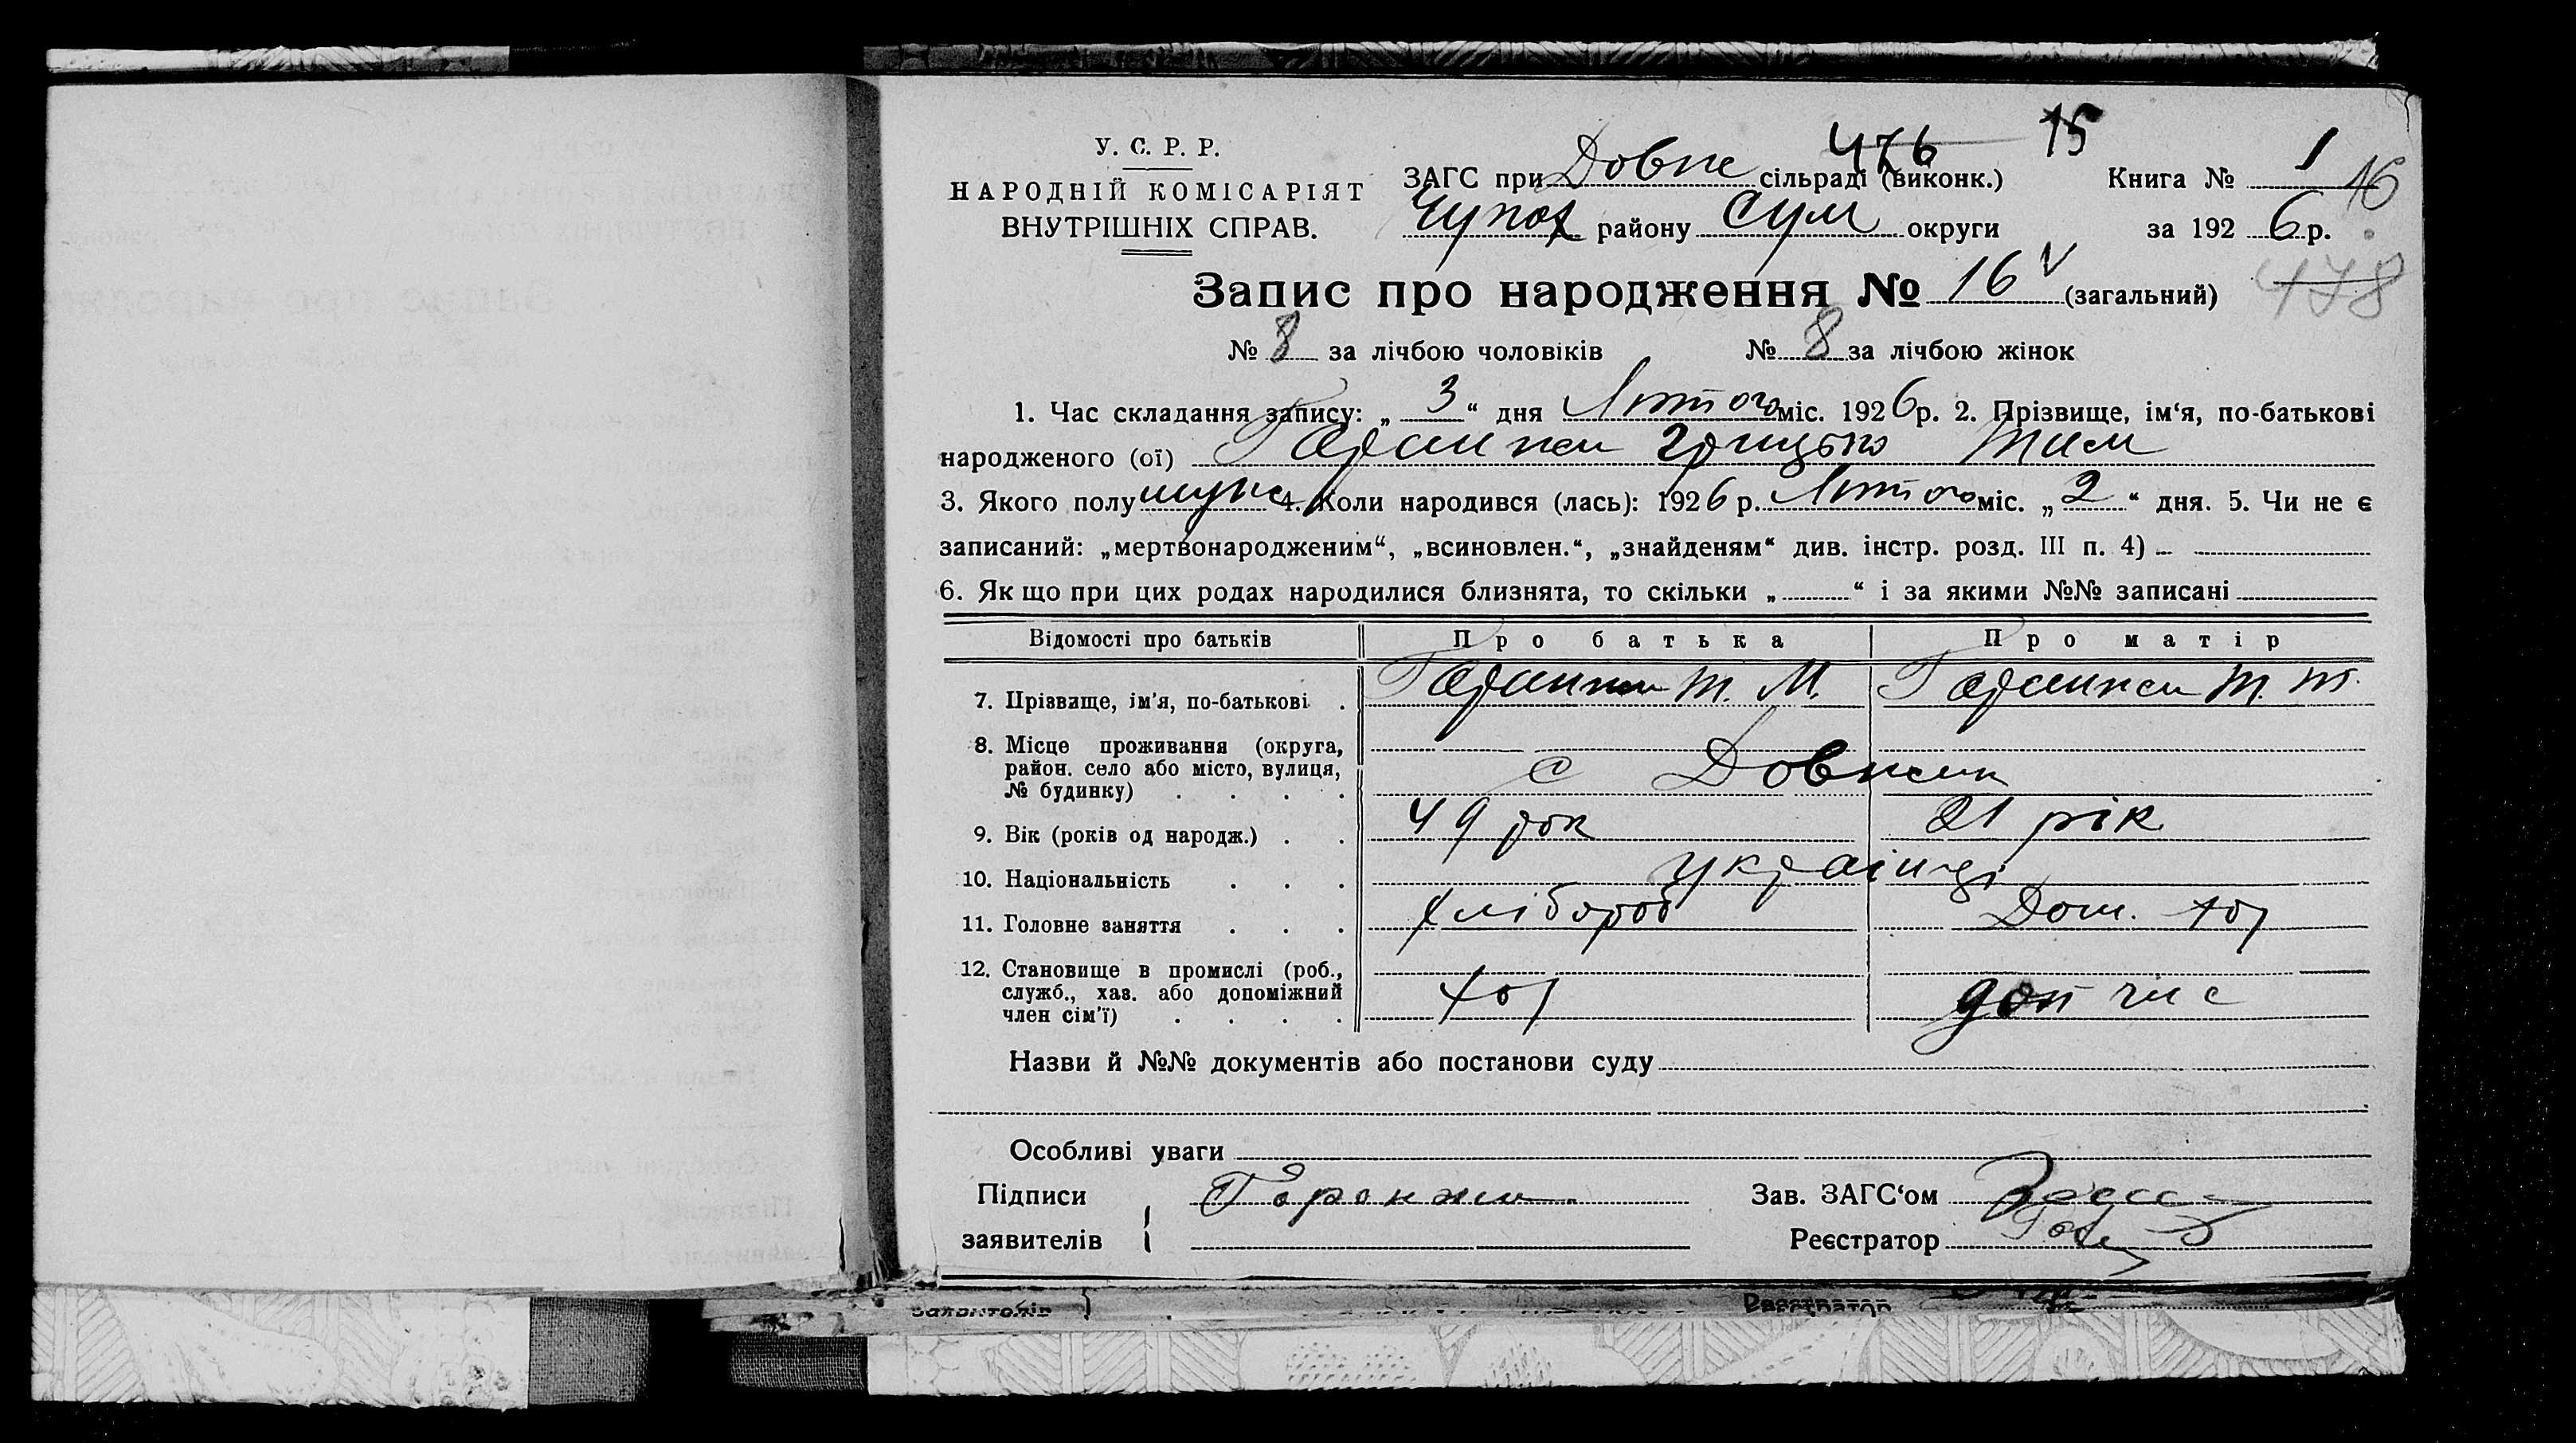 476 15
У. С. Р. Р.
НАРОДНІЙ КОМІСАРІЯТ
ВНУТРІШНІХ СПРАВ.
ЗАГС при Довже сільраді (виконк.) Книга № 1 16
Чупах району Сум округи за 1926 р.
Запис про народження № 16 (загальний) 478
№ 8 за лічбою чоловіків № 8 за лічбою жінок
1. Час складання запису: „ 3 “ дня Лютого міс. 1926 р. 2. Прізвище, ім‘я, по-батькові
народженого (ої) Гаранжа Грицько Тим
3. Якого полу муже 4. Коли народився (лась): 1926 р. Лютого міс. „ 2 “ дня. 5. Чи не є
записаний: „мертвонародженим“, „всиновлен.“, „знайденям“ див. інстр. розд. III п. 4)
6. Як що при цих родах народилися близнята, то скільки „ “ і за якими №№ записані
Відомості про батьків Про батька Про матір
7. Прізвище, ім'я, по-батькові Гаранжа Т. М. Гаранжа
8. Місце проживання (округа,
район. село або місто, вулиця,
№ будинку) с Довжик
9. Вік (років од народж.) 49 рок 21 рік
10. Національність українці
11. Головне заняття хлібороб Дом. хоз
12. Становище в промислі (роб.,
служб., хаз. або допоміжний
член сім'ї) хоз доп чле
Назви й №№ документів або постанови суду
Особливі уваги
Підписи Горонжа Зав. ЗАГС‘ом
заявителів Реєстратор
заявителів Реєстратор